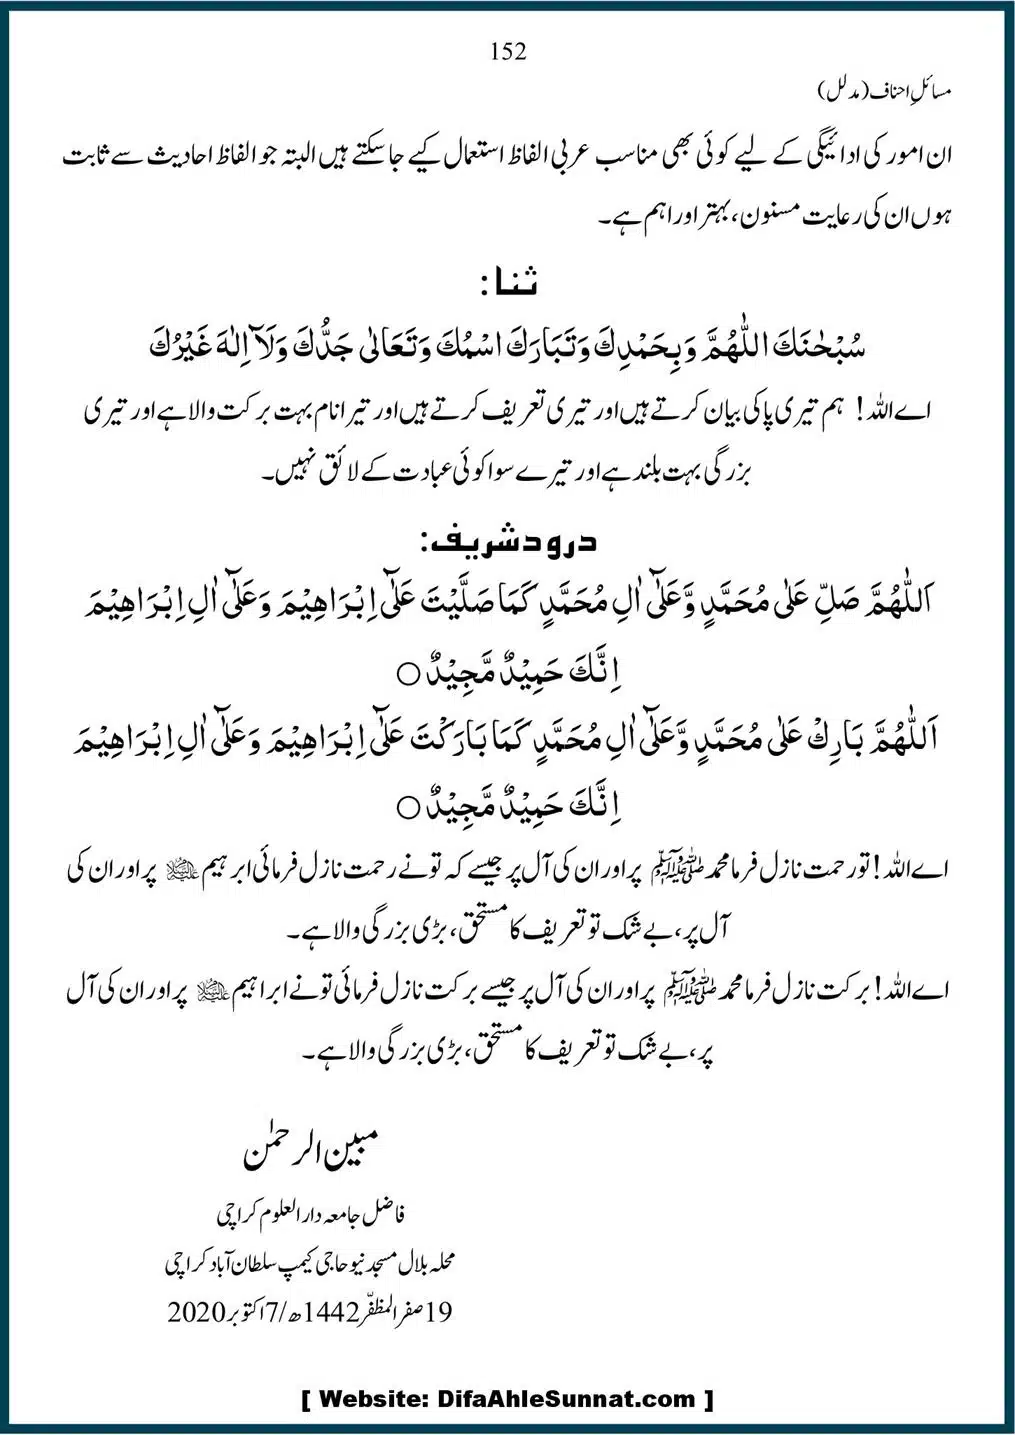 152
مسائلِ احناف (مدلل)
ان امور کی ادائیگی کے لیے کوئی بھی مناسب عربی الفاظ استعمال کیے جاسکتے ہیں البتہ جو الفاظ احادیث سے ثابت
ہوں ان کی رعایت مسنون، بہتر اور اہم ہے۔
ثنا:
سُبْحٰنَكَ اللّٰهُمَّ وَبِحَمْدِكَ وَتَبَارَكَ اسْمُكَ وَتَعَالٰى جَدُّكَ وَلَآ اِلٰهَ غَيْرُكَ
اے اللہ! ہم تیری پاکی بیان کرتے ہیں اور تیری تعریف کرتے ہیں اور تیرا نام بہت برکت والا ہے اور تیری
بزرگی بہت بلند ہے اور تیرے سوا کوئی عبادت کے لائق نہیں۔
درود شریف:
اَللّٰهُمَّ صَلِّ عَلٰى مُحَمَّدٍ وَّعَلٰٓى اٰلِ مُحَمَّدٍ كَمَا صَلَّيْتَ عَلٰٓى اِبْرَاهِيْمَ وَعَلٰٓى اٰلِ اِبْرَاهِيْمَ
اِنَّكَ حَمِيْدٌ مَّجِيْدٌ ○
اَللّٰهُمَّ بَارِكْ عَلٰى مُحَمَّدٍ وَّعَلٰٓى اٰلِ مُحَمَّدٍ كَمَا بَارَكْتَ عَلٰٓى اِبْرَاهِيْمَ وَعَلٰٓى اٰلِ اِبْرَاهِيْمَ
اِنَّكَ حَمِيْدٌ مَّجِيْدٌ ○
اے اللہ! تو رحمت نازل فرما محمد ﷺ پر اور ان کی آل پر جیسے کہ تو نے رحمت نازل فرمائی ابرہیم علیہ السلام پر اور ان کی
آل پر، بے شک تو تعریف کا مستحق، بڑی بزرگی والا ہے۔
اے اللہ! برکت نازل فرما محمد ﷺ پر اور ان کی آل پر جیسے برکت نازل فرمائی تو نے ابراہیم علیہ السلام پر اور ان کی آل
پر، بے شک تو تعریف کا مستحق، بڑی بزرگی والا ہے۔
مبین الرحمٰن
فاضل جامعہ دار العلوم کراچی
محلہ بلال مسجد نیو حاجی کیمپ سلطان آباد کراچی
19 صفر المظفّر 1442ھ/ 7 اکتوبر 2020
[ Website: DifaAhleSunnat.com ]